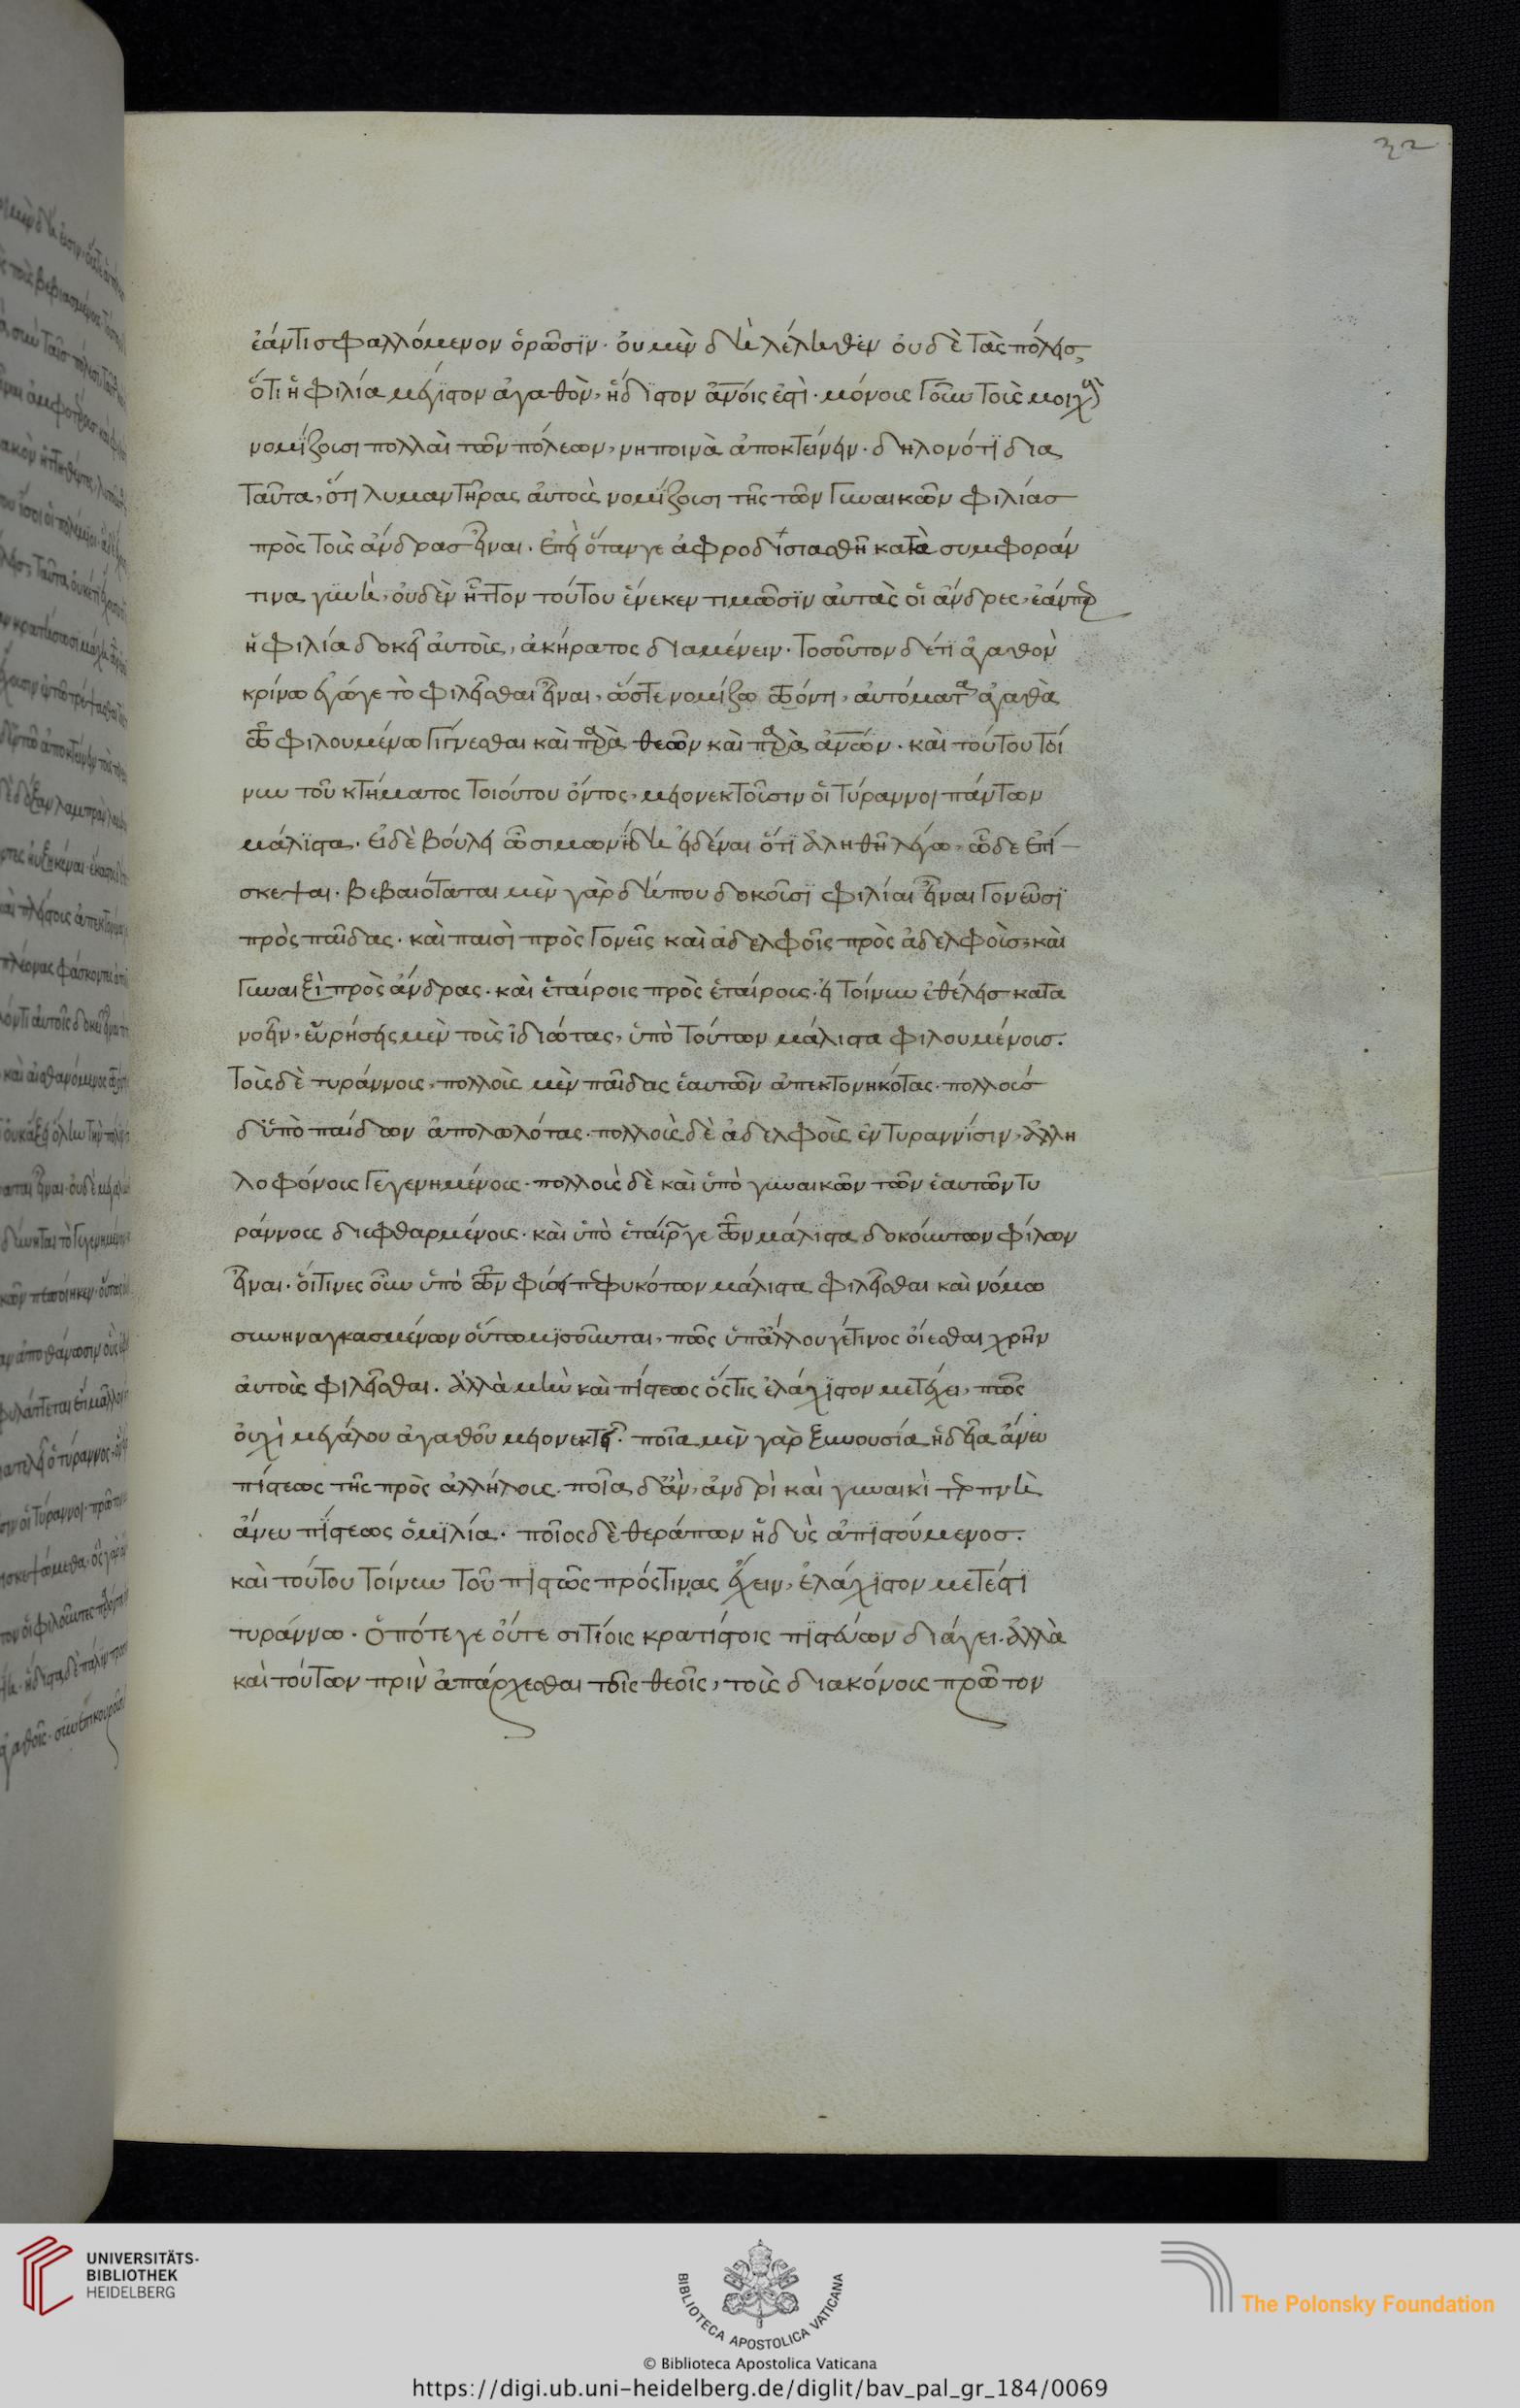 32
ἐάντι σφαλλόμενον ὁρῶσϊν· οὐ μὲν δὴ λέληθεν οὐδὲ τὰς πόλεις,
ὅτι ἡ φιλία μέγιστον ἀγαθὸν, ἥδιστον ἀνοις ἐστὶ· μόνους γοῦν τοὺς μοιχοὺς
νομίζουσι πολλαὶ τῶν πόλεων, νηποινὰ ἀποκτείνειν· δηλονότι δια
ταῦτα, ὅτι λυμαντῆρας αὐτοὺς νομίζουσι τῆς τῶν γυναικῶν φιλίασ
πρὸς τοὺς ἄνδρασ εἶναι. ἐπεὶ ὅταν γε ἀφροδισιασθῆ κατὰ συμφοράν
τινα γυνὴ, οὐδὲν ἧττον τούτου ἕνεκεν τιμῶσϊν αὐτὰς οἱ ἄνδρες, ἐάνπερ
ἡ φιλία δοκεῖ αὐτοῖς, ἀκήρατος διαμένειν. Τοσοῦτον δέτι ἀγαθὸν
κρίνω ἔγωγε τὸ φιλεῖσθαι εἶναι, ὥστε νομίζω τῶ όντι, αὐτόματα ἀγαθὰ
τῶ φιλουμένω γίγνεσθαι καὶ παρὰ θεῶν καὶ παρὰ ἀνων. καὶ τούτου τοί
νυν τοῦ κτήματος τοιούτου ὄντος, μειονεκτοῦσιν οἱ τύραννοι πάντων
μάλϊστα. εἰ δὲ βούλει ὦ σιμωνίδη εἰδέναι ὅτι ἀληθῆ λέγω, ὧδε ἐπί
σκεψαι. βεβαιόταται μὲν γὰρ δήπου δοκοῦσϊ φιλίαι εἶναι γονεῦσϊ
πρὸς παῖδας. καὶ παισὶ πρὸς γονεῖς καὶ ἀδελφοῖς πρὸς ἀδελφοὺς, καὶ
γυναιξὶ πρὸς ἄνδρας. καὶ ἑταίροις πρὸς ἑταίρους. εἰ τοίνυν ἐθέλεισ κατα
νοεῖν, εὑρήσεις μὲν τοὺς ἰδιώτας, ὑπὸ τούτων μάλιστα φιλουμένουσ.
τοὺς δὲ τυράννους, πολλοὺς μὲν παῖδας ἑαυτῶν ἀπεκτονηκότας. πολλοὺσ
δ ὑπὸ παίδων ἀπολωλότας. πολλοὺς δὲ ἀδελφοὺς ἐν τυραννίσιν, ἀλλη
λοφόνους γεγενημένους. πολλοὺς δὲ καὶ ὑπὸ γυναικῶν τῶν ἑαυτῶν τυ
ράννους διεφθαρμένους. καὶ ὑπὸ ἑταίρων γε τῶν μάλϊστα δοκούντων φίλων
εἶναι. οἵτινες οὖν ὑπὸ τῶν φύσει πεφυκότων μάλιστα φιλεῖσθαι καὶ νόμω
συνηναγκασμένων οὕτω μϊσοῦνται, πῶς ὑπ ἄλλου γέτινος οἴεσθαι χρὴν
αὐτοὺς φιλεῖσθαι. ἀλλὰ μὴν καὶ πίστεως ὅςτις ἐλάχϊστον μετέχει, πῶς
οὐχὶ μεγάλου ἀγαθοῦ μειονεκτεῖ. ποῖα μὲν γὰρ ξυνουσία ἡδεῖα ἄνευ
πίστεως τῆς πρὸς ἀλλήλους. ποῖα δ ἂν, ἀνδρὶ καὶ γυναικὶ τερπνὴ
ἄνευ πίστεως ὁμϊλία. ποῖος δὲ θεράπων ἡδὺς ἀπϊστούμενοσ.
καὶ τούτου τοίνυν τοῦ πϊστῶς πρός τινας ἔχειν, ἐλάχϊστον μετέστϊ
τυράννω. ὁπότε γε οὔτε σιτίοις κρατίστοις πϊστεύων διάγει. ἀλλὰ
καὶ τούτων πρὶν ἀπάρχεσθαι τοῖς θεοῖς, τοὺς διακόνους πρῶτον
UNIVERSITÄTS-
BIBLIOTHEK
HEIDELBERG
BIBLIOTECA APOSTOLICA VATICANA
The Polonsky Foundation
© Biblioteca Apostolica Vaticana
https://digi.ub.uni-heidelberg.de/diglit/bav_pal_gr_184/0069